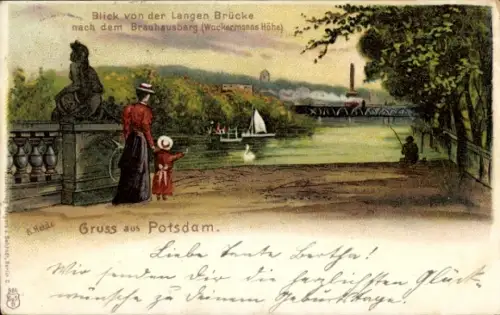 Blick von der Langen Brücke
nach dem Brauhausberg (Wackermanns Höhe)
Gruss aus Potsdam.
Liebe Tante Bertha!
Wir senden Dir die herzlichsten Glück-
wünsche zu Deinem Geburtstage.